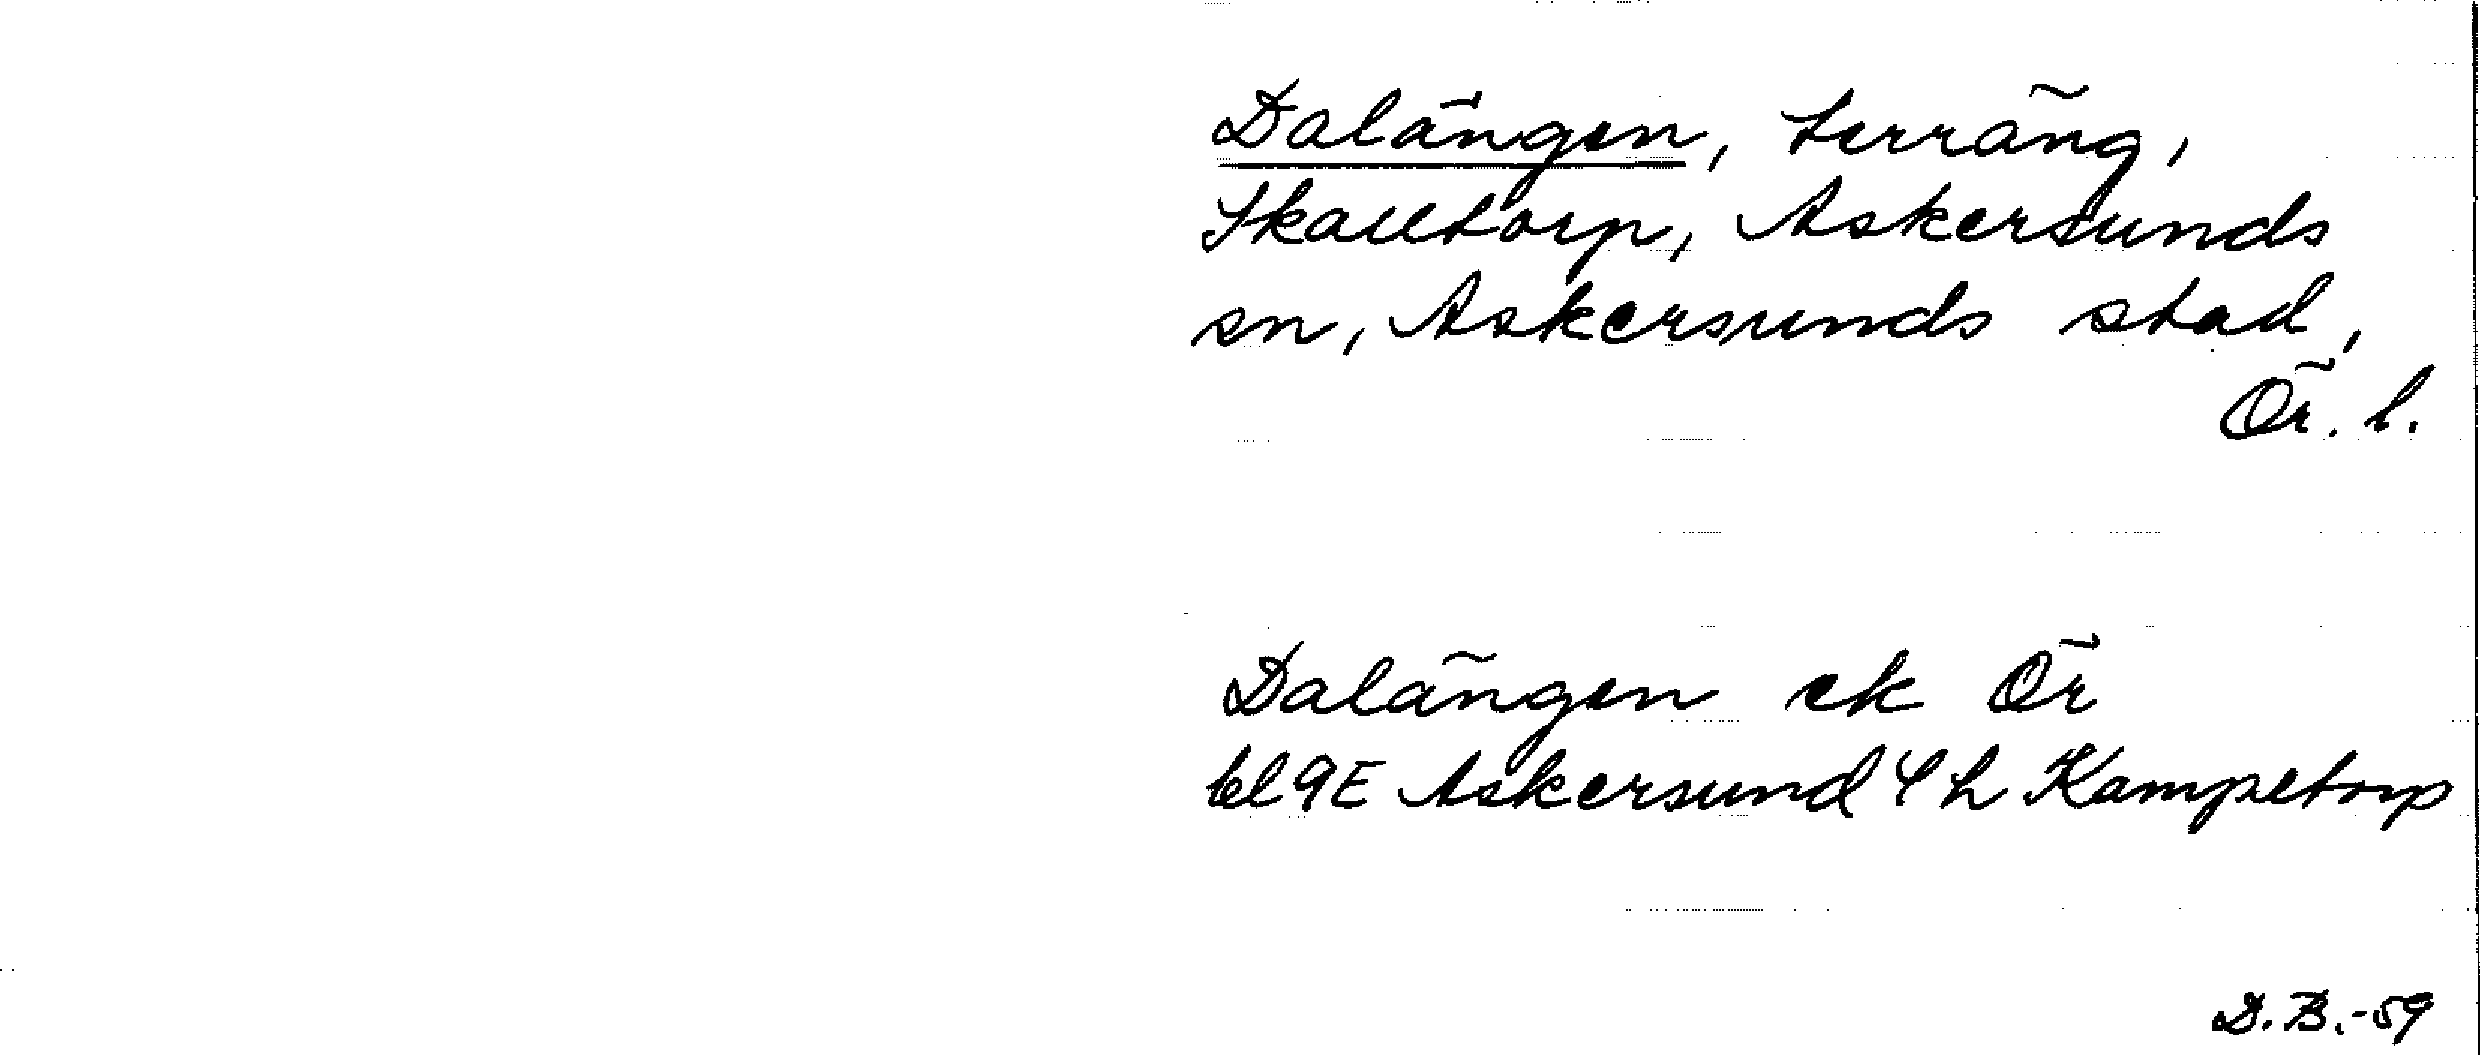 Dalängen, terräng,
Skalltorp, Askersunds
sn, Askersunds stad,
Ör. l.
Dalängen ek Ör
bl 9E Askersund 4 h Kampetorp
D.B.-59